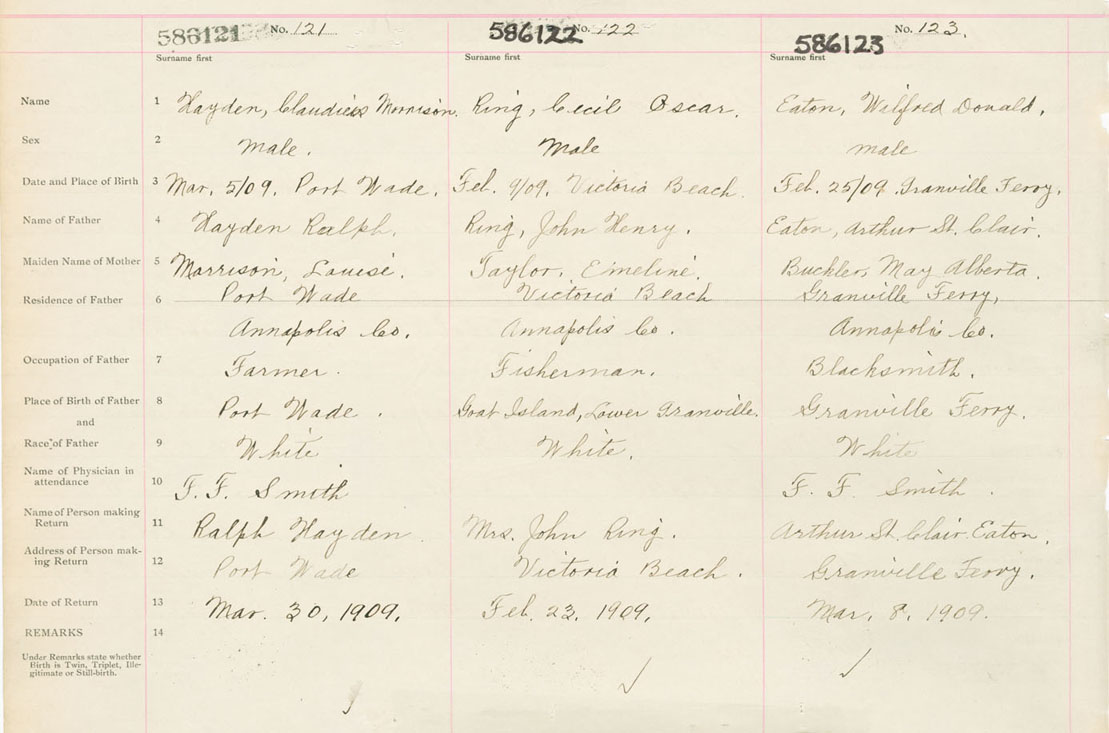 586121 No. 121 586122 No. 122 586123 No. 123.
Surname first Surname first Surname first
Name 1 Hayden, Morrison. Ring, Cecil Oscar. Eaton, Wilfred Donald.
Sex 2 Male. Male male
Date and Place of Birth 3 Mar. 5/09. Port Wade. Feb. 9/09. Victoria Beach. Feb. 25/09. Granville Ferry.
Name of Father 4 Hayden Ralph. Ring, John Henry. Eaton, Arthur St. Clair.
Maiden Name of Mother 5 Morrison, Louise. Taylor, Emeline. Buckler, May Alberta.
Residence of Father 6 Port Wade Victoria Beach Granville Ferry,
Annapolis Co. Annapolis Co. Annapolis Co.
Occupation of Father 7 Farmer. Fisherman. Blacksmith.
Place of Birth of Father 8 Port Wade. Goat Island, Lower Granville. Granville Ferry.
and
Race of Father 9 White White. White
Name of Physician in
attendance 10 F. F. Smith F. F. Smith.
Name of Person making
Return 11 Ralph Hayden. Mrs. John Ring. Arthur St. Clair Eaton.
Address of Person mak-
ing Return 12 Port Wade Victoria Beach. Granville Ferry.
Date of Return 13 Mar. 30, 1909. Feb. 23, 1909. Mar. 8, 1909.
REMARKS 14
Under Remarks state whether
Birth is Twin, Triplet, Ille-
gitimate or Still-birth.